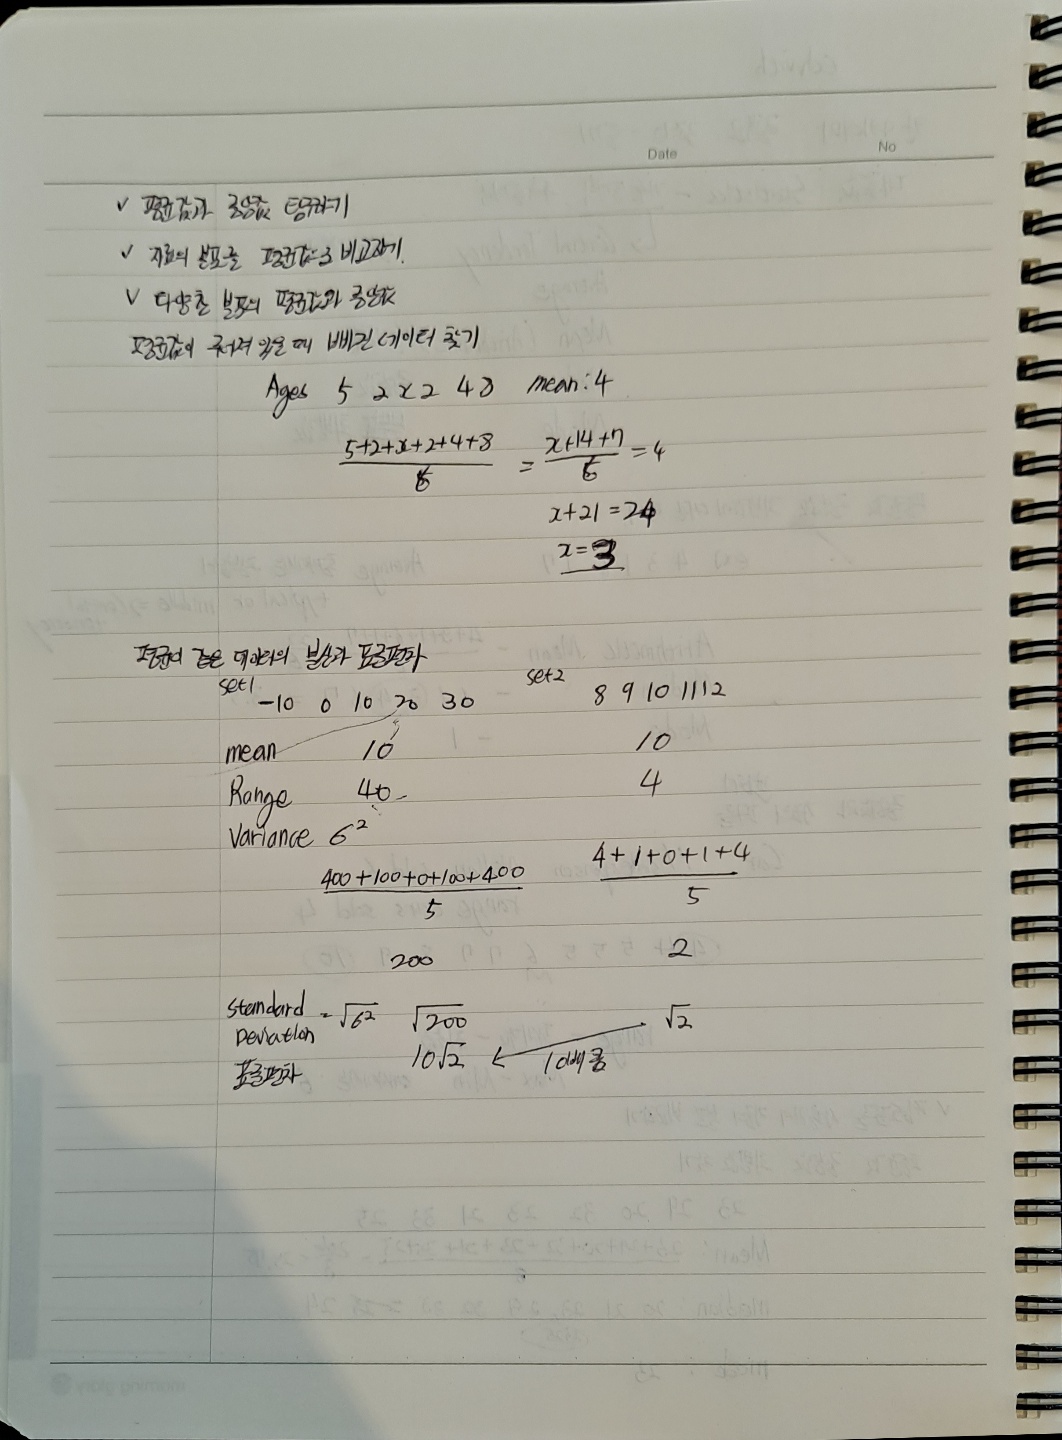 Date
No
✓ 평균값과 중앙값 탐구하기
✓ 자료의 분포를 평균값으로 비교하기.
✓ 다양한 분포의 평균값과 중앙값
평균값이 주어져 있을 때 빠진 데이터 찾기
Ages 5 2 x 2 4 8 mean: 4
5+2+x+2+4+8 / 6 = x+14+7 / 6 = 4
x+21 = 24
x = 3
평균이 같은 데이터의 분산과 표준편차
set1 -10 0 10 20 30 set2 8 9 10 11 12
mean 10 10
Range 40 4
Variance 6²
400+100+0+100+400 / 5 4+1+0+1+4 / 5
200 2
Standard Deviation = √6² √200 √2
표준편차 10√2 ← 10배 큼